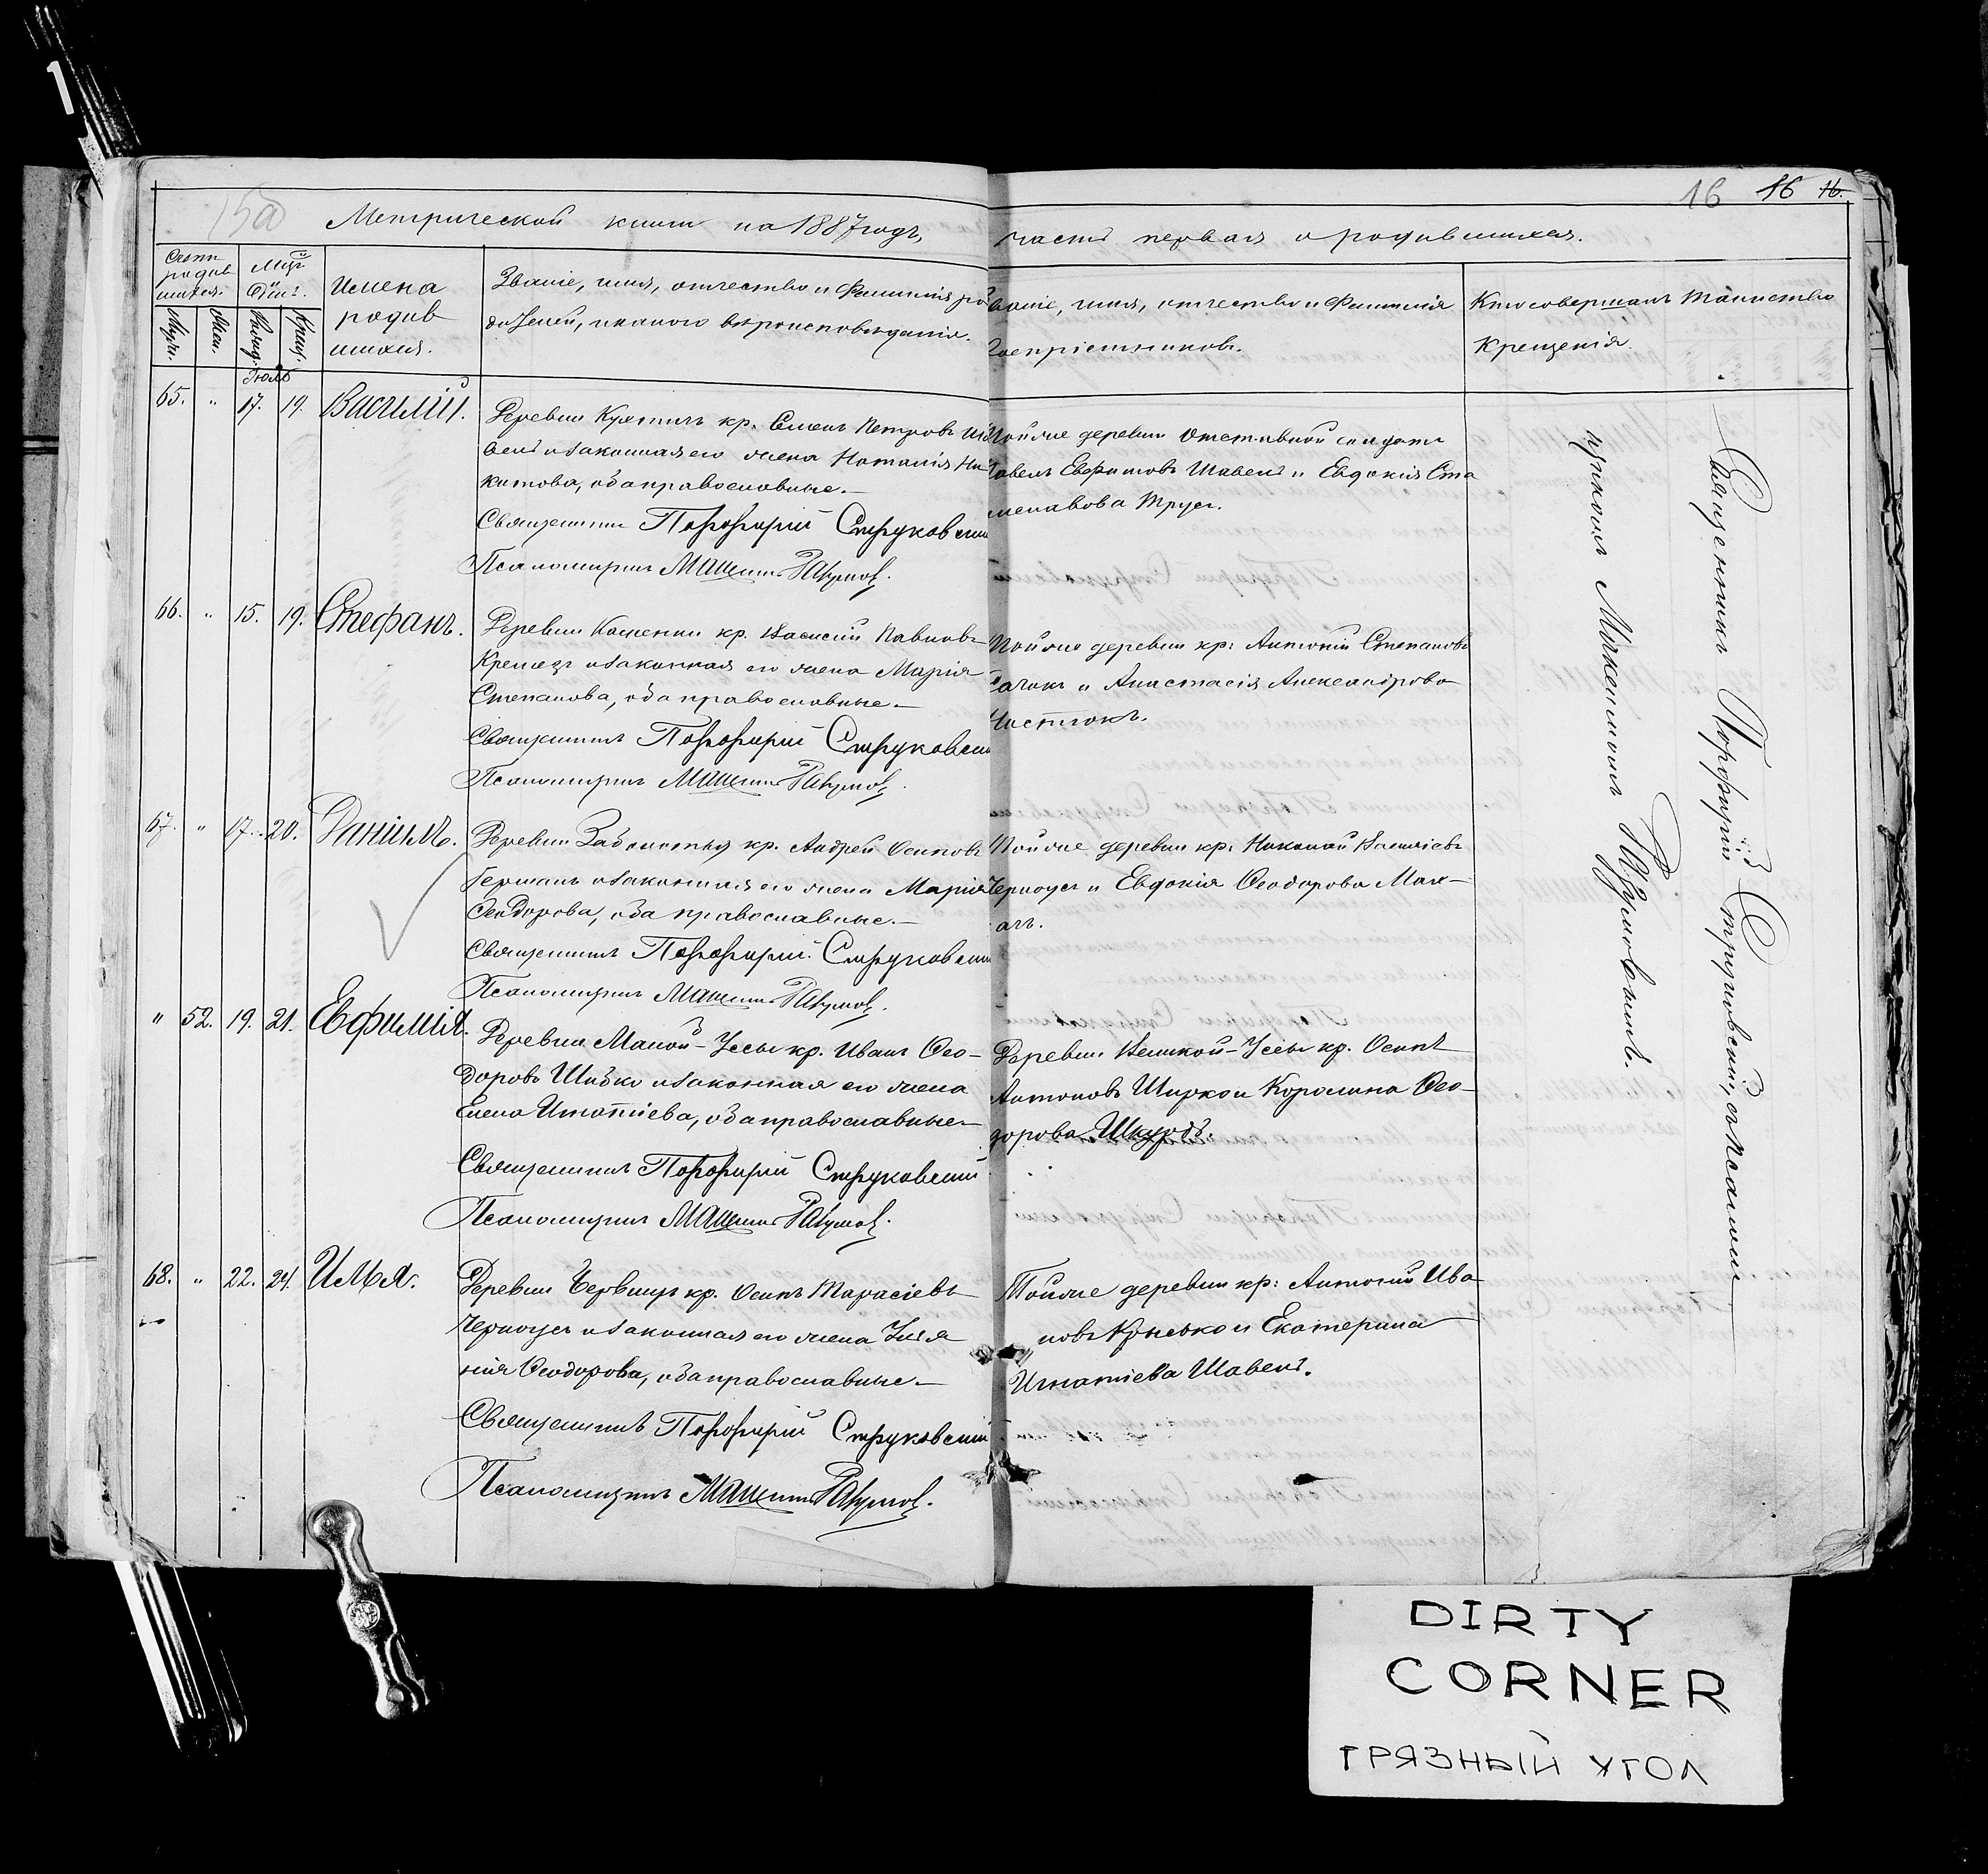 Метрической книги на 1887 годъ,
часть первая о родившихся.
16 16 16.
Счетъ родив шихся.
Муж.
Жен.
Мѣц. и день.
Рожд.
Крещ.
Имена
родив
шихся.
Званіе, имя, отчество и фамилія ро
дителей, и какого вѣроисповѣданія.
Званіе, имя, отчество и фамилія
воспріемниковъ.
Кто совершалъ таинство
крещенія.
Іюль
65. " 17. 19. Василій.
Деревни кр. Семенъ Петровъ Ша
вель и законная его жена Наталія Ни
китова, оба православные.—
Священникъ Порфирій Струковскій
Псаломщикъ
Тойже деревни отставной солдатъ
Павелъ Евфимовъ Шавель и Евдокія Ста
Трус.
66. " 15. 19. Стефанъ.
Деревни Каменки кр. Василій Павловъ
и законная его жена Марія
Степанова, оба православные.—
Священникъ Порфирій Струковскій
Псаломщикъ
Тойже деревни кр: Антоній Степановъ
и Анастасія Александрова
67. " 17. 20. Даніилъ.
Деревни Заболотья кр. Андрей Осиповъ
Германъ и законная его жена Марія
Ѳеодорова, оба православные.—
Священникъ Порфирій Струковскій
Псаломщикъ
Тойже деревни кр: Николай Василіевъ
Черноусъ и Евдокія Ѳеодорова
" 52. 19. 21. Евфимія.
Деревни Малой-Уссы кр. Иванъ Ѳео-
доровъ Шибко и законная его жена
Елена Игнатіева, оба православные—
Священникъ Порфирій Струковскій
Псаломщикъ
Деревни Великой-Уссы кр. Осипъ
Антоновъ Ширко и Каролина Ѳео-
дорова Шкурдъ.
68. " 22. 24. Илья.
Деревни кр. Осипъ Тарасіевъ
Черноусъ и законная его жена Улья
нія Ѳеодорова, оба православные.—
Священникъ Порфирій Струковскій
Псаломщикъ
Тойже деревни кр: Антоній Ива
новъ и Екатерина
Игнатіева Шавель.
Священникъ Порфирій Струковскій, съ Псалом
щикомъ
DIRTY
CORNER
ГРЯЗНЫЙ УГОЛ